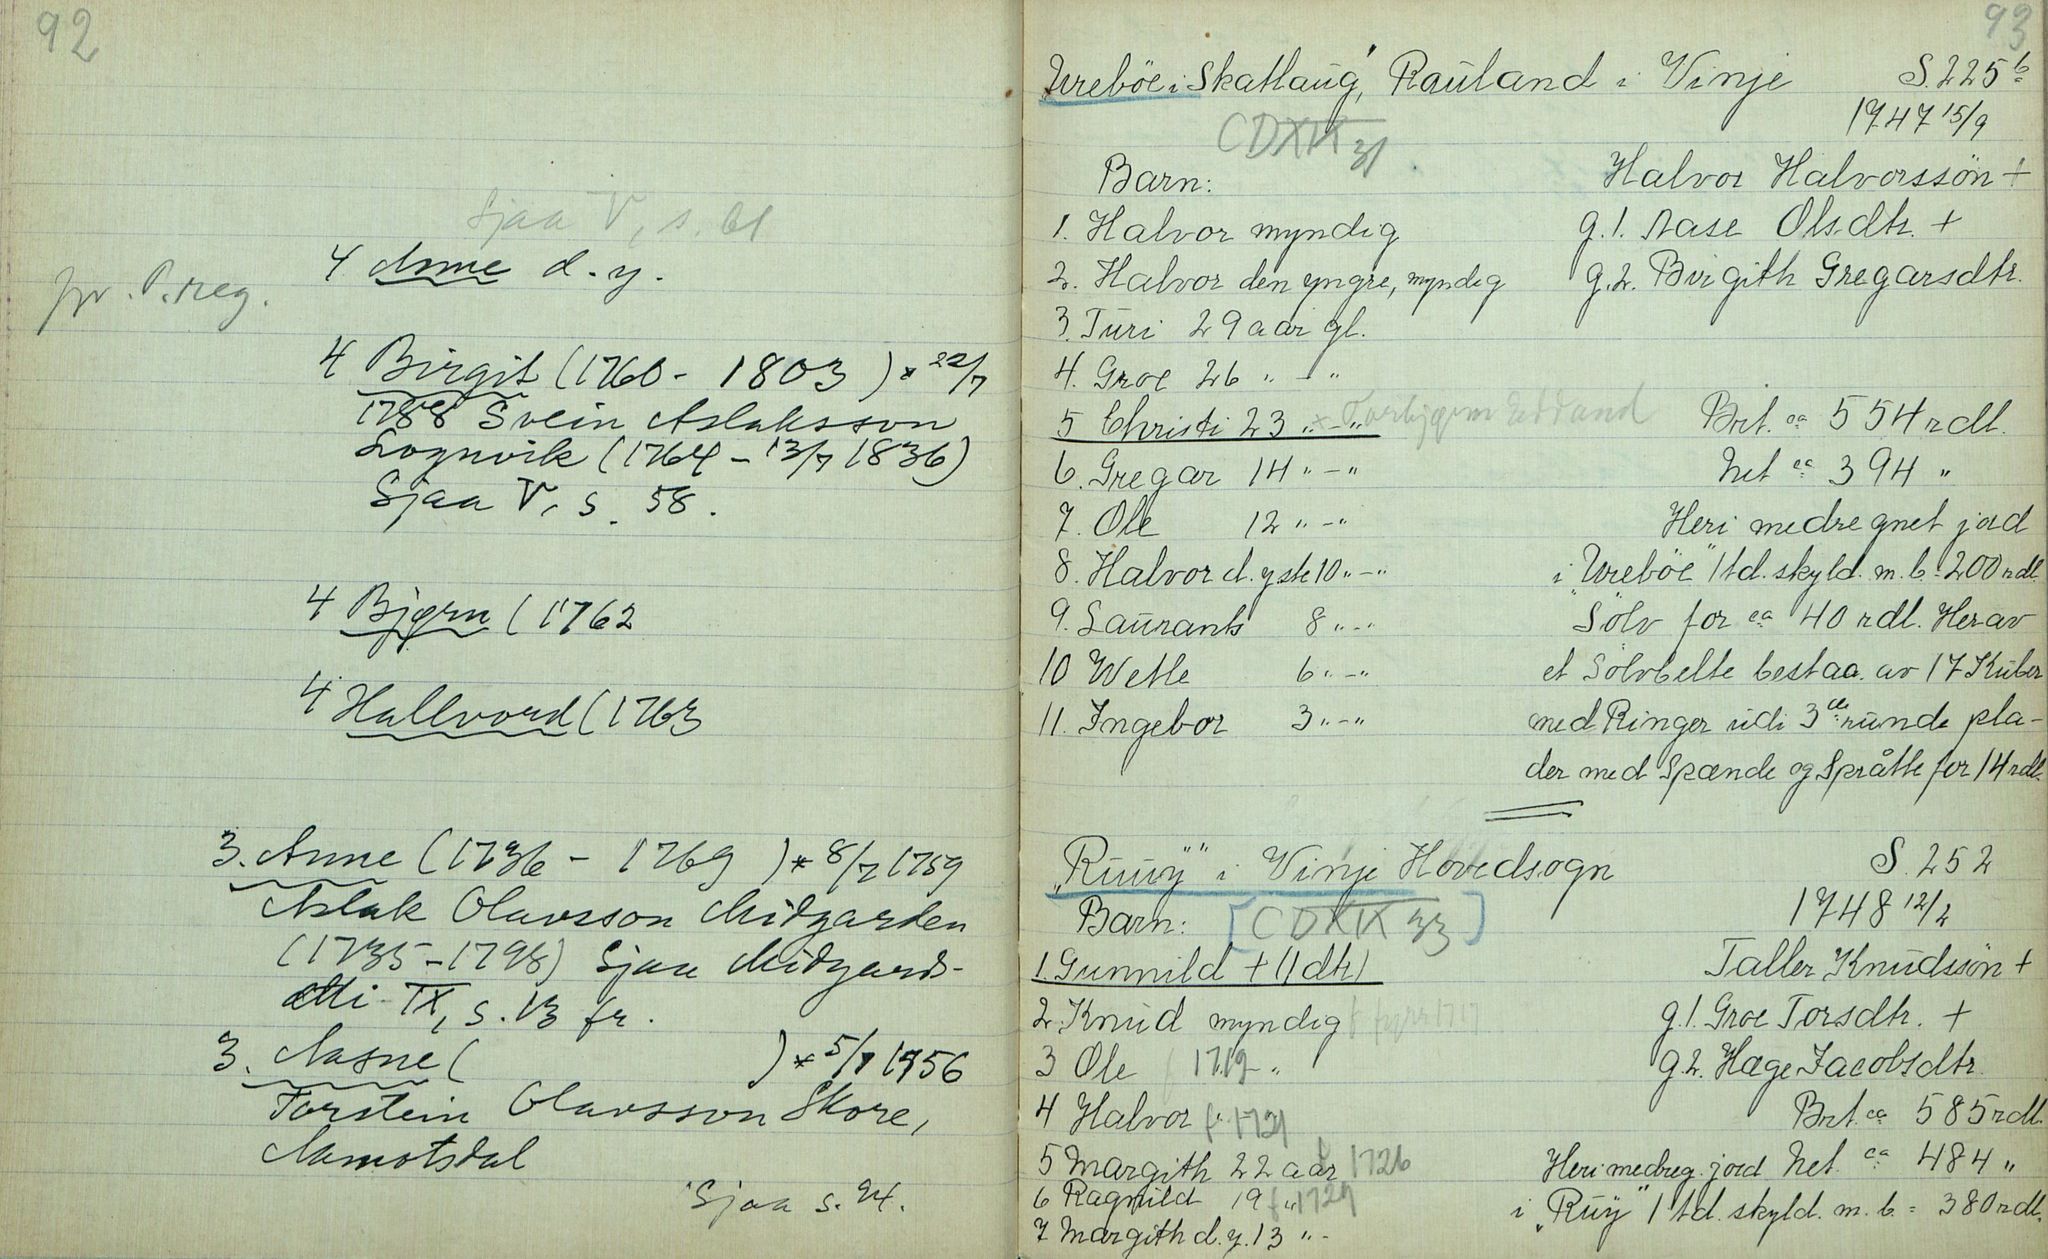 92
Sjaa V, s. 61
4 Anne d. y.
jvr. P. reg.
4 Birgit (1760 - 1803 ) * 22/7
1788 Svein Aslaksson
Lognvik (1764 - 13/7 1836)
Sjaa V, s. 58.
4 Bjørn (1762
4 Hallvord (1763
3. Anne (1736 - 1769 ) * 8/7 1759
Aslak Olavsson Midgarden
(1735 - 1798) Sjaa Midgards-
ætti IX, s. 13 fr.
3. Aasne ( ) * 5/7 1756
Torstein Olavsson Skore,
Aamotsdal
Sjaa s. 94.
93
„Ureböe i Skatlaug", Rauland i Vinje S. 225 b
1747 15/9
CDXIX 31
Barn: Halvor Halvorssön +
1. Halvor myndig g. 1. Aase Olsdtr. +
2. Halvor den yngre, myndig g. 2. Birgith Gregarsdtr.
3. Turi 29 aar gl.
4. Groe 26 " - "
5 Christi 23 " - " * Torbjørn Edland Brt. ca 554 rdl.
6. Gregar 14 " - " Net ca 394 "
7. Ole 12 " - " Heri medregnet jord
8. Halvor d. yste 10 " - " i „Ureböe" 1 td. skyld. m. b. = 200 rdl.
9. Laurants 8 " - " Sölv for ca 40 rdl. Herav
10 Wetle 6 " - " et Sölvbelte bestaa. av 17 Kuber
11. Ingebor 3 " - " med Ringer udi 3de runde pla-
der med Spænde og Språtte for 14 rdl.
„Ruuy" i Vinje Hovedsogn S. 252
1748 12/2
Barn: [CDXIX 33]
1. Gunnild + (1 dtr) Taller Knudssön +
2. Knud myndig f fyrr 1717 g. 1. Groe Torsdtr. +
3 Ole f 1719 - " g. 2. Hæge Jacobsdtr.
4 Halvor " f. 1721 Brt. ca 585 rdl.
5 Margith 22 aar f 1726 Heri medreg. jord Net. ca 484 "
6 Ragnild 19 " f 1729 i „Ruy" 1 td. skyld. m. b. = 380 rdl.
7 Margith d. y. 13 " -